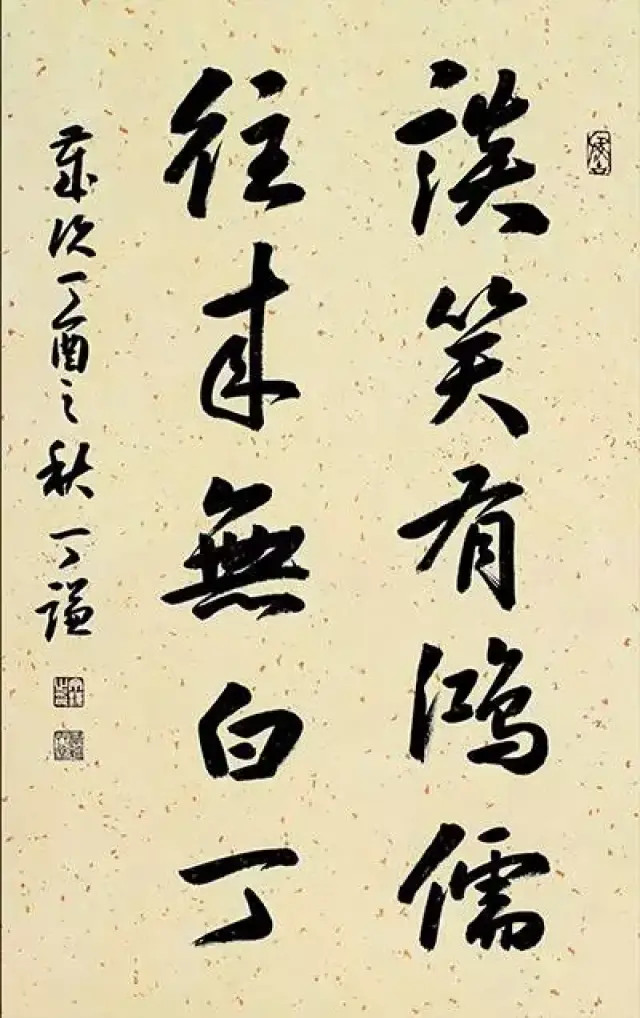 談笑有鴻儒
往来無白丁
歲次丁酉之秋丁謙